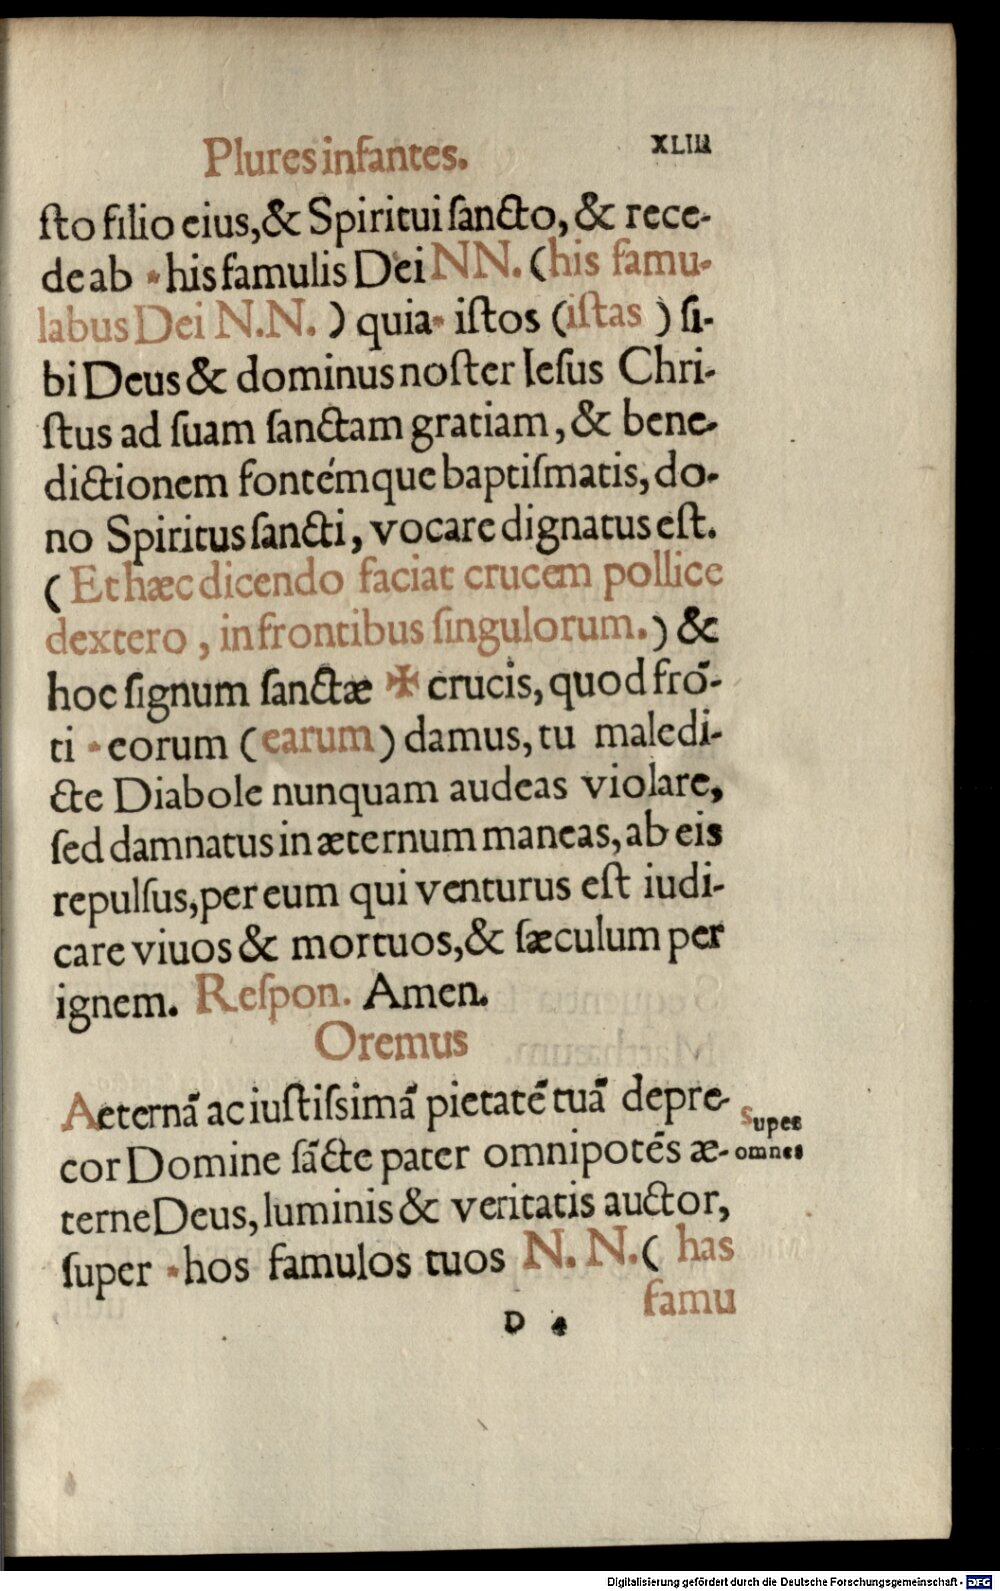 Plures infantes. XLIIII
ſto filio eius, & Spiritui ſancto, & rece-
de ab * his famulis Dei NN. (his famu-
labus Dei N.N. ) quia * iſtos (iſtas ) ſi-
bi Deus & dominus noſter Ieſus Chri-
ſtus ad ſuam ſanctam gratiam, & bene-
dictionem fontémque baptiſmatis, do-
no Spiritus ſancti, vocare dignatus eſt.
( Et hæc dicendo faciat crucem pollice
dextero , in frontibus ſingulorum.) &
hoc ſignum ſanctæ ✠ crucis, quod frō-
ti * eorum (earum) damus, tu maledi-
cte Diabole nunquam audeas violare,
ſed damnatus in æternum maneas, ab eis
repulſus, per eum qui venturus eſt iudi-
care viuos & mortuos, & ſæculum per
ignem. Reſpon. Amen.
Oremus
Aeternā ac iuſtiſsimā pietatē tuā depre-
cor Domine ſācte pater omnipotēs æ-
terne Deus, luminis & veritatis auctor,
ſuper * hos famulos tuos N. N. ( has
famu
Super
omnes
D 4
Digitalisierung gefördert durch die Deutsche Forschungsgemeinschaft - DFG